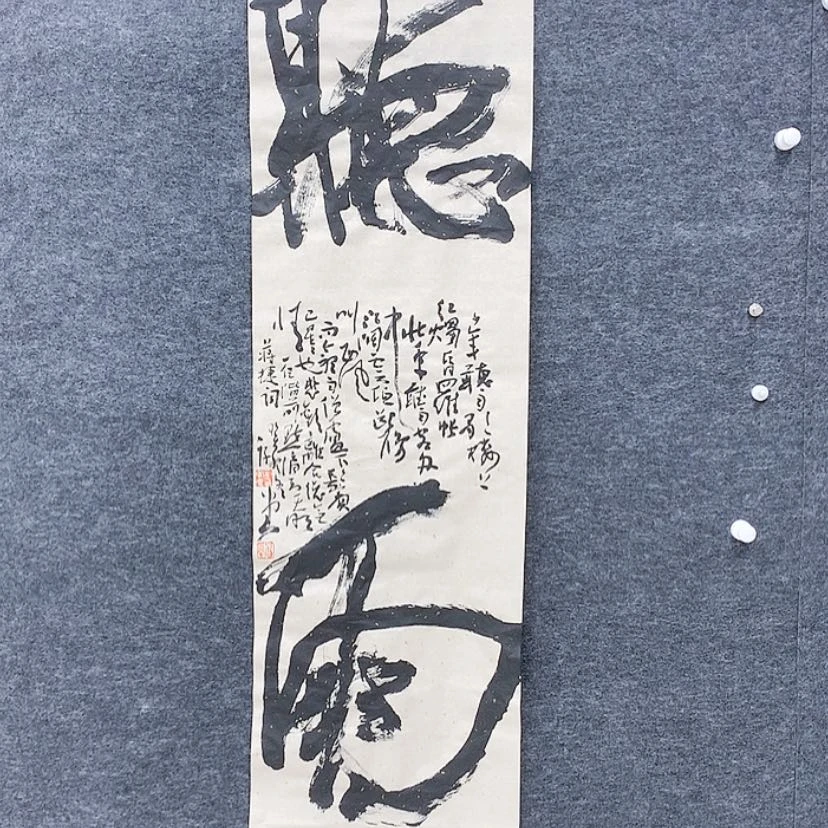 聽雨
少年聽雨歌樓上
紅燭昏羅帳
壯年聽雨客舟
中江
闊雲低斷雁
叫西風
而今聽雨僧廬下鬢
已星星也悲歡離合總無
情一任階前點滴到天明
蔣捷詞